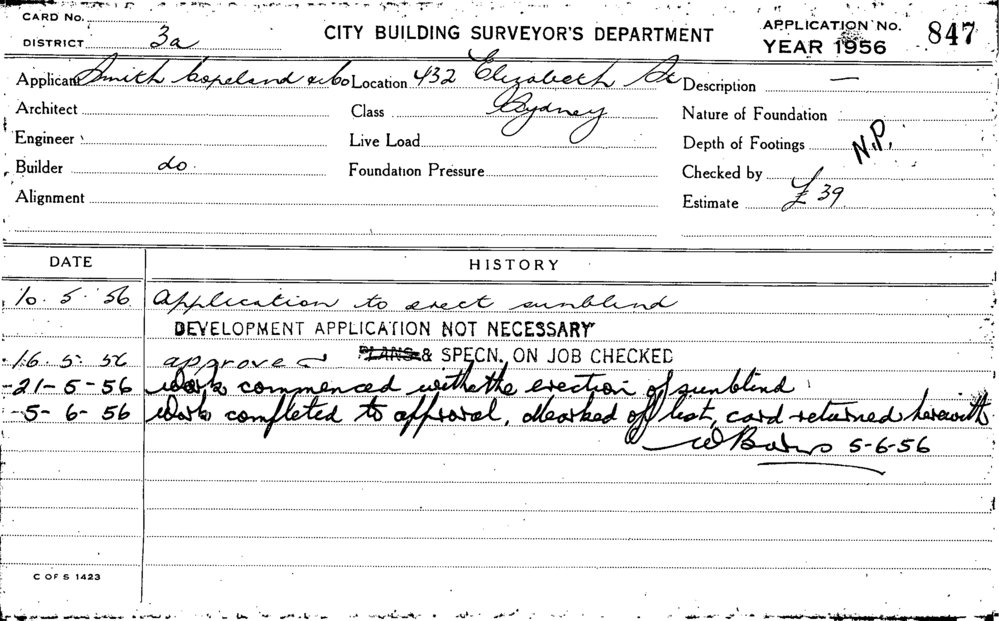 CARD No.
DISTRICT 3a
CITY BUILDING SURVEYOR'S DEPARTMENT
APPLICATION No. 847
YEAR 1956
Applicant Smith Copeland & Co Location 432 Elizabeth St Description —
Architect Class Sydney Nature of Foundation
Engineer Live Load Depth of Footings N.P.
Builder do. Foundation Pressure Checked by
Alignment Estimate £39
DATE HISTORY
10. 5. 56 Application to erect sunblind
DEVELOPMENT APPLICATION NOT NECESSARY
16. 5. 56 approved PLANS & SPECN. ON JOB CHECKED
-21-5-56 Work commenced with the erection of sunblind
-5-6-56 Work completed to approval, Marked off list, card returned herewith
5-6-56
C OF S 1423